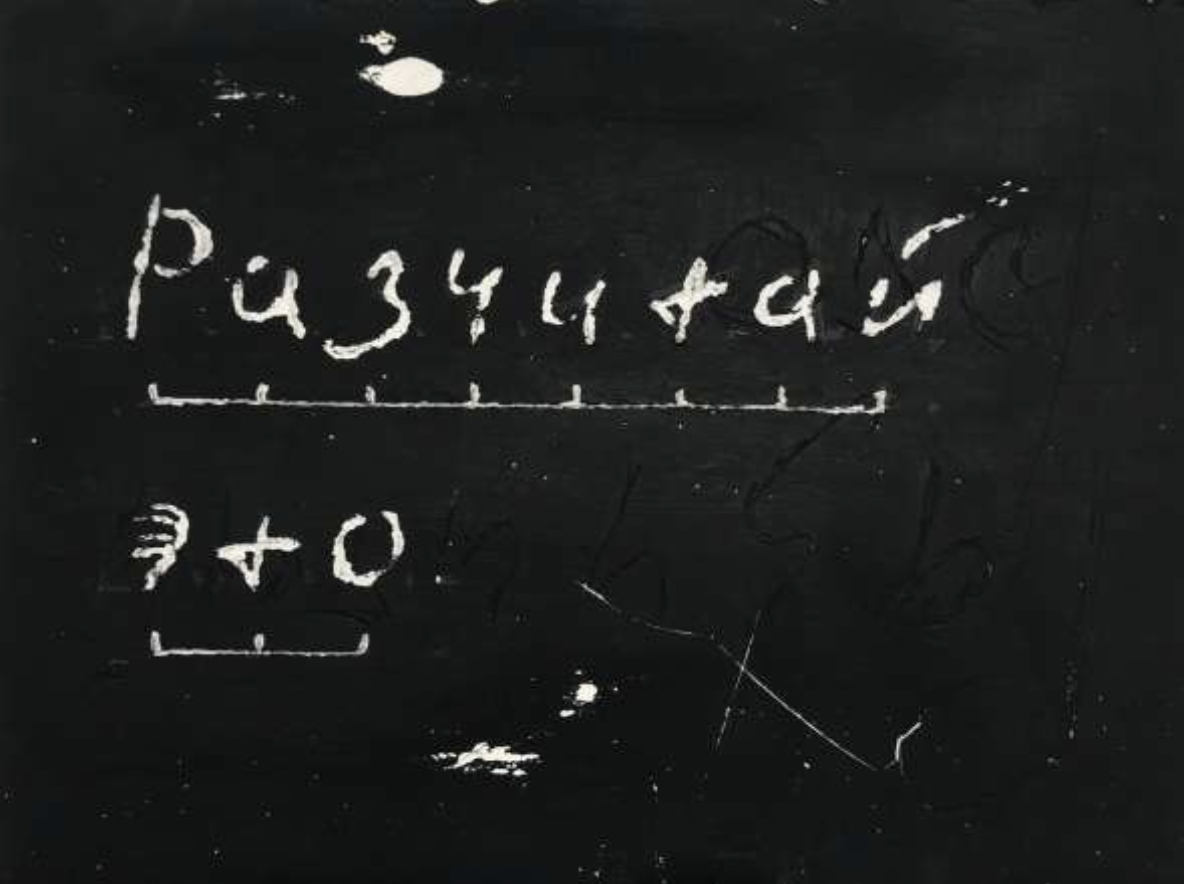 Разчитай
это